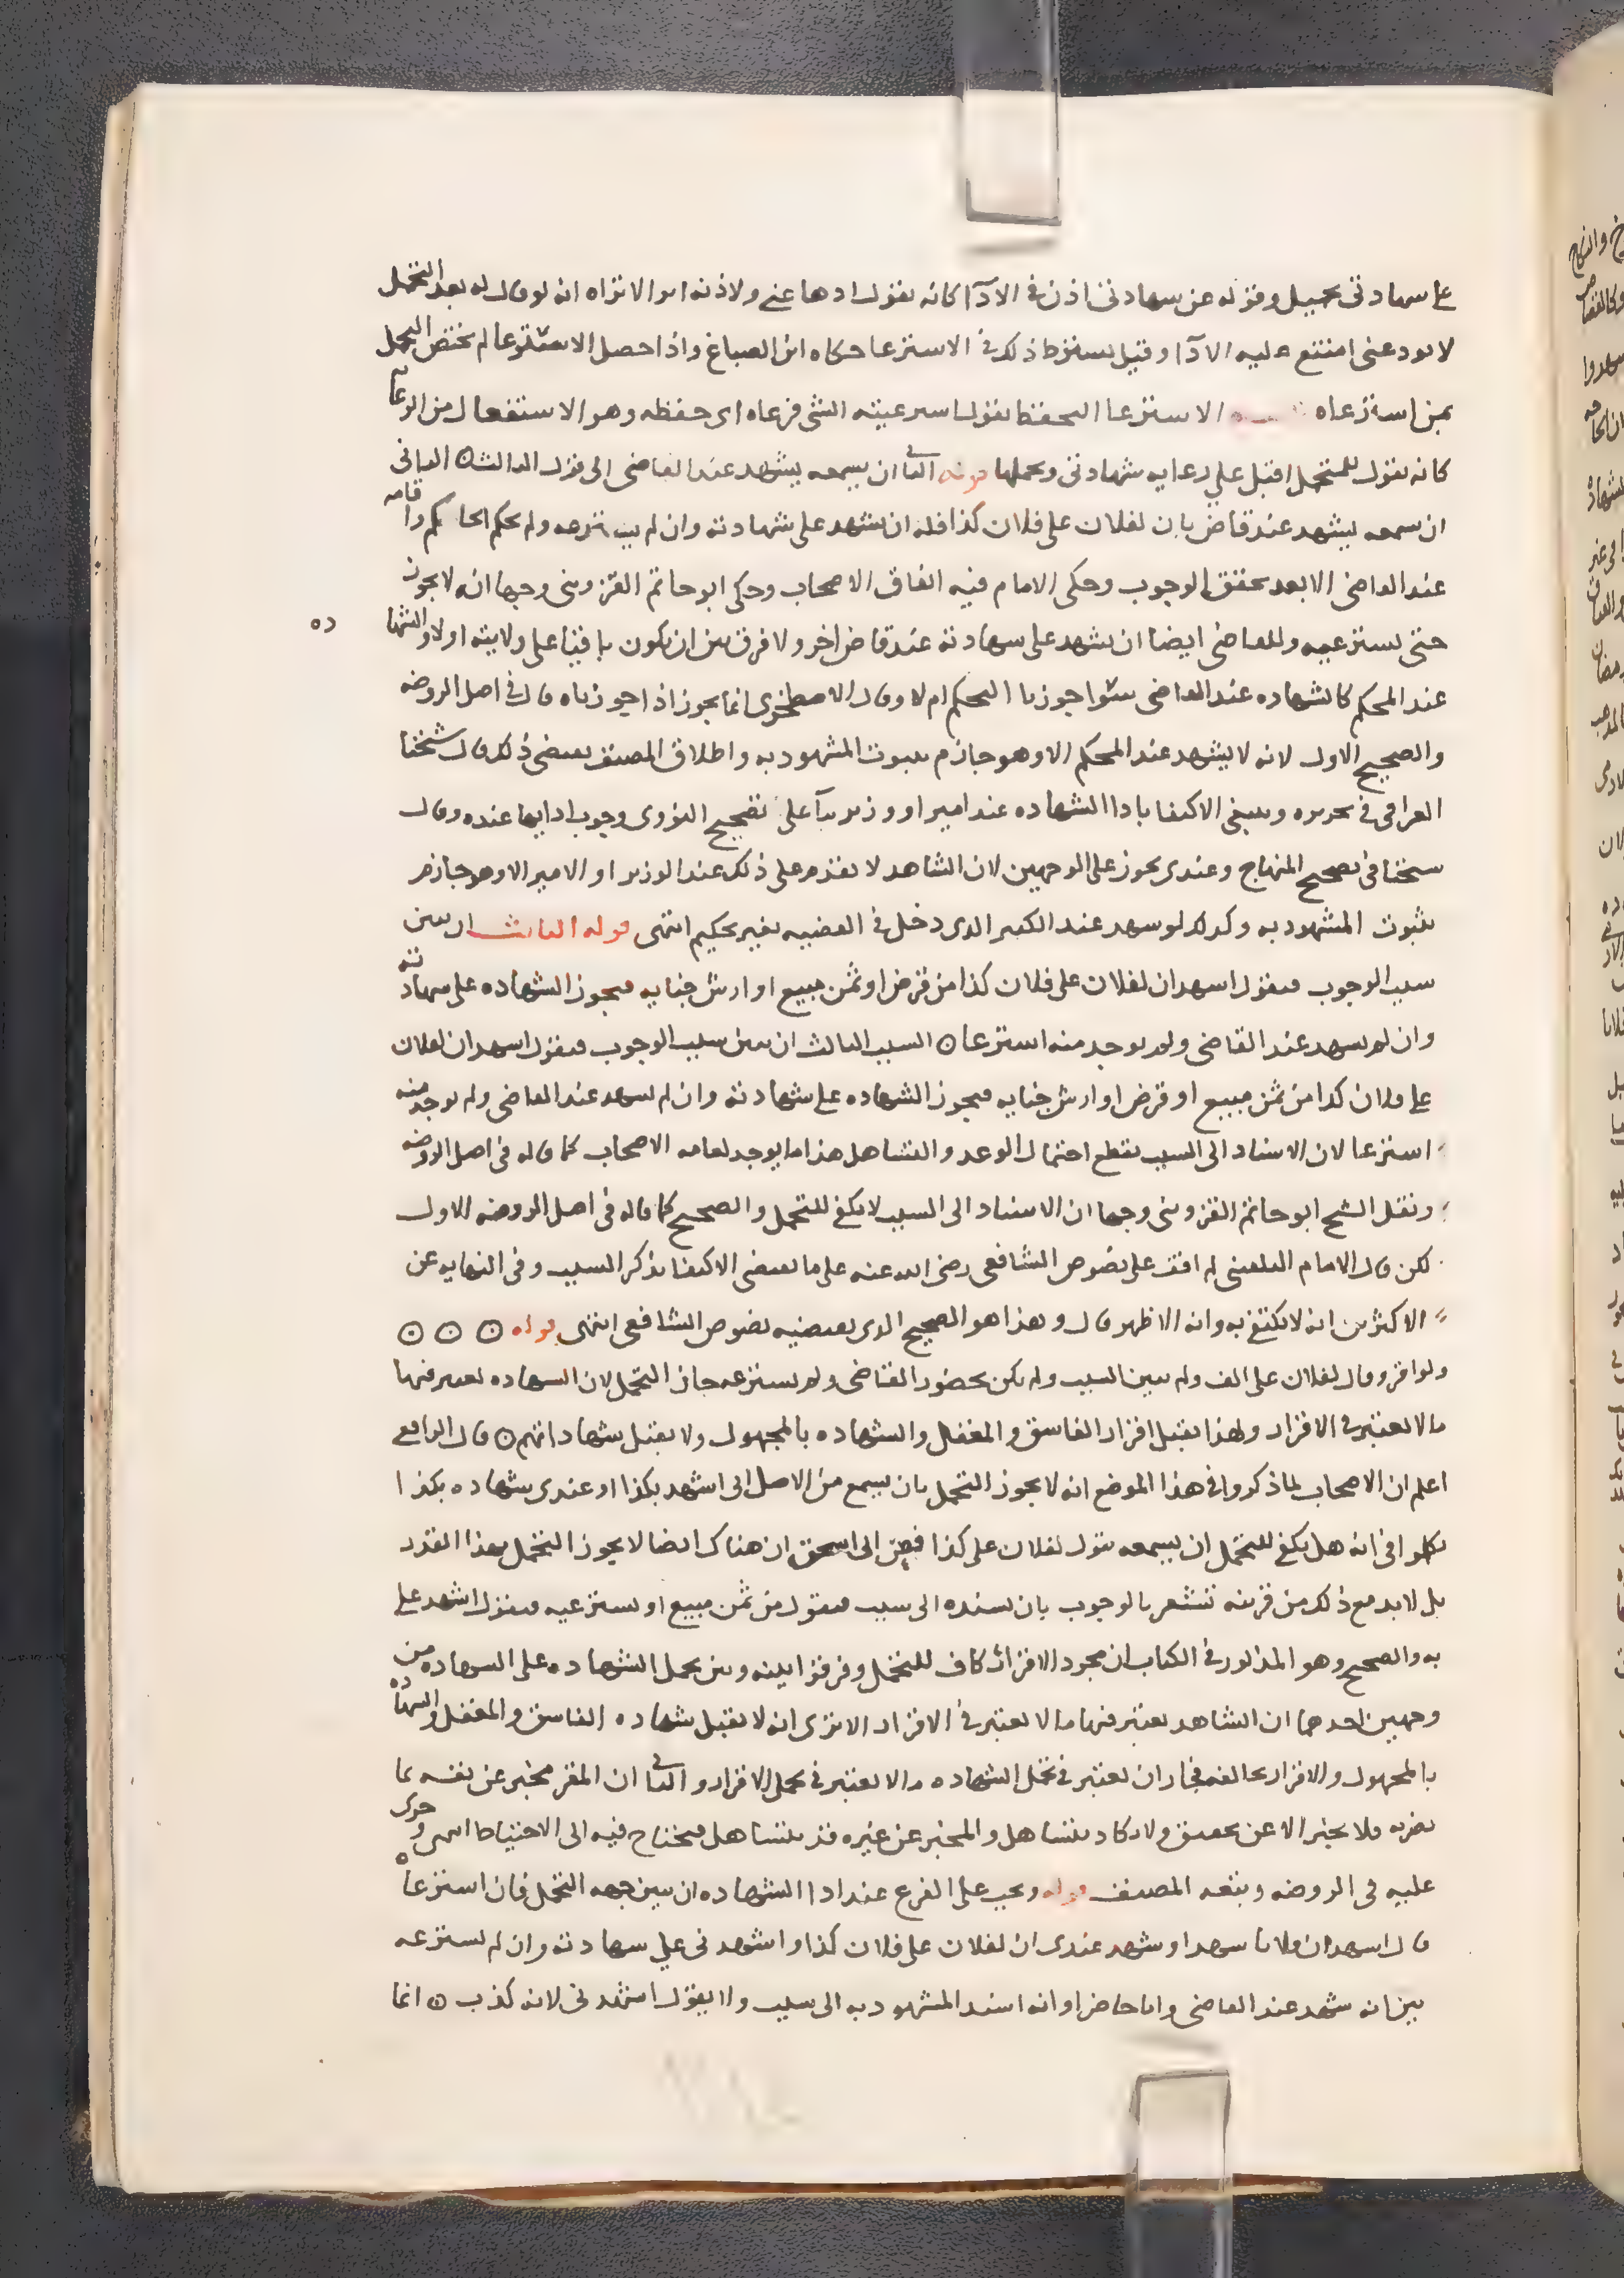 على شهادتى تحميل وقوله عن شهادتى اذن فى الادآ كانه يقول ادها عنى ولاذنه اثر الا تراه انه لو قال له بعد التحمل
لا تود عنى امتنع عليه الادآ وقيل يشترط ذلك فى الاسترعا حكاه ابن الصباغ واذا حصل الاسترعا لم يختص التحمل
بمن استرعاه الاسترعا التحفظ يقول استرعيته الشى فرعاه اى حفظه وهو الاستفعال من الرعا
كانه يقول للمتحمل اقبل على رعايه شهادتى وتحملها قوله الثانى ان يسمعه يشهد عند القاضى الى قوله الثالث ⊙ الثانى
ان سمعه يشهد عند قاض بان لفلان على فلان كذا فله ان يشهد على شهادته وان لم يسترعه ولم يحكم الحاكم اقامه
عند القاضى الا بعد تحقق الوجوب وحكى الامام فيه اتفاق الاصحاب وحكى ابو حاتم القزوينى وجها انه لا يجوز
حتى يسترعيه وللقاضى ايضا ان يشهد على شهادته عند قاض اخر ولا فرق بين ان يكون باقيا على ولايته اولا والشها
ده
عند المحكم كالشهاده عند القاضى سوا جوزنا التحكيم ام لا وقال الاصطخرى انما يجوز اذا جوزناه قال فى اصل الروضه
والصحيح الاول لانه لا يشهد عند المحكم الا وهو جازم بثبوت المشهود به واطلاق المصنف يقتضى ذلك قال شيخنا
العراقى فى تحريره وينبغى الاكتفا بادا الشهاده عند امير او وزير بنآ على تصحيح النووى وجوب ادايها عنده وقال
شيخنا فى تصحيح المنهاج وعندى يجوز على الوجهين لان الشاهد لا يقدم على ذلك عند الوزير او الامير الا وهو جازم
بثبوت المشهود به وكذلك لو شهد عند الكبير الذى دخل فى القضيه بغير تحكيم انتهى قوله الثالث ان يبين
سبب الوجوب فيقول اشهد ان لفلان على فلان كذا من قرض او ثمن مبيع او ارش جنايه فيجوز الشهاده على شهادته
وان لم يشهد عند القاضى ولم يوجد منه استرعا ⊙ السبب الثالث ان يبين سبب الوجوب فيقول اشهد ان لفلان
على فلان كذا من ثمن مبيع او قرض او ارش جنايه فيجوز الشهاده على شهادته وان لم يشهد عند القاضى ولم يوجد منه
استرعا لان الاسناد الى السبب يقطع احتمال الوعد والتساهل هذا ما يوجد لعامه الاصحاب كما قاله فى اصل الروضه
ونقل الشيخ ابو حاتم القزوينى وجها ان الاسناد الى السبب لا يكفى للتحمل والصحيح كما قاله فى اصل الروضه الاول
لكن قال الامام البلقينى لم اقف على نصوص الشافعى رضى الله عنه على ما يقتضى الاكتفا بذكر السبب وفى النهايه عن
الاكثرين انه لا يكتفى به وانه الاظهر قال وهذا هو الصحيح الذى يقتضيه نصوص الشافعى انتهى قوله ⊙ ⊙ ⊙
ولو اقر وقال لفلان على الف ولم يبين السبب ولم يكن بحضور القاضى ولم يسترعه جاز التحمل لان الشهاده يعتبر فيها
ما لا يعتبر فى الاقرار ولهذا يقبل اقرار الفاسق والمغفل والشهاده بالمجهول ولا يقبل شهاداتهم ⊙ قال الرافعى
اعلم ان الاصحاب لما ذكروا فى هذا الموضع انه لا يجوز التحمل بان يسمع من الاصل انى اشهد بكذا او عندى شهاده بكذا
تكلموا فى انه هل يكفى للتحمل ان يسمعه يقول لفلان على كذا فعن ابى اسحق ان هناك ايضا لا يجوز التحمل بهذا القدر
بل لابد مع ذلك من قرينه تشعر بالوجوب بان يسنده الى سبب فيقول من ثمن مبيع او يسترعيه فيقول اشهد على
به والصحيح وهو المذكور فى الكتاب ان مجرد الاقرار كاف للتحمل وفرقوا بينه وبين تحمل الشهاده على الشهاده من
وجهين احدهما ان الشاهد يعتبر فيها ما لا يعتبر فى الاقرار الا ترى انه لا يقبل شهاده الفاسق والمغفل والشهاده
بالمجهول والاقرار بخالفه فجاز ان يعتبر فى تحمل الشهاده ما لا يعتبر فى تحمل الاقرار والثانى ان المقر مخبر عن نفسه بما
يضربه فلا يخبر الا عن تحقيق ولا يكاد يتساهل والمخبر عن غيره قد يتساهل فيحتاج فيه الى الاحتياط انتهى وجرى
عليه فى الروضه وتبعه المصنف قوله ويجب على الفرع عند ادا الشهاده ان يبين جهه التحمل فان استرعاه
قال اشهد ان فلانا شهد او شهد عندى ان لفلان على فلان كذا واشهدنى على شهادته وان لم يسترعه
بين انه شهد عند القاضى وانا حاضر او انه اسند المشهود به الى سبب ولا يقول اشهدنى لانه كذب ⊙ انما